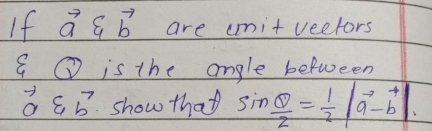 If a⃗ & b⃗ are unit vectors
& θ is the angle between
a⃗ & b⃗. show that sin θ/2 = 1/2 |a⃗-b⃗|.